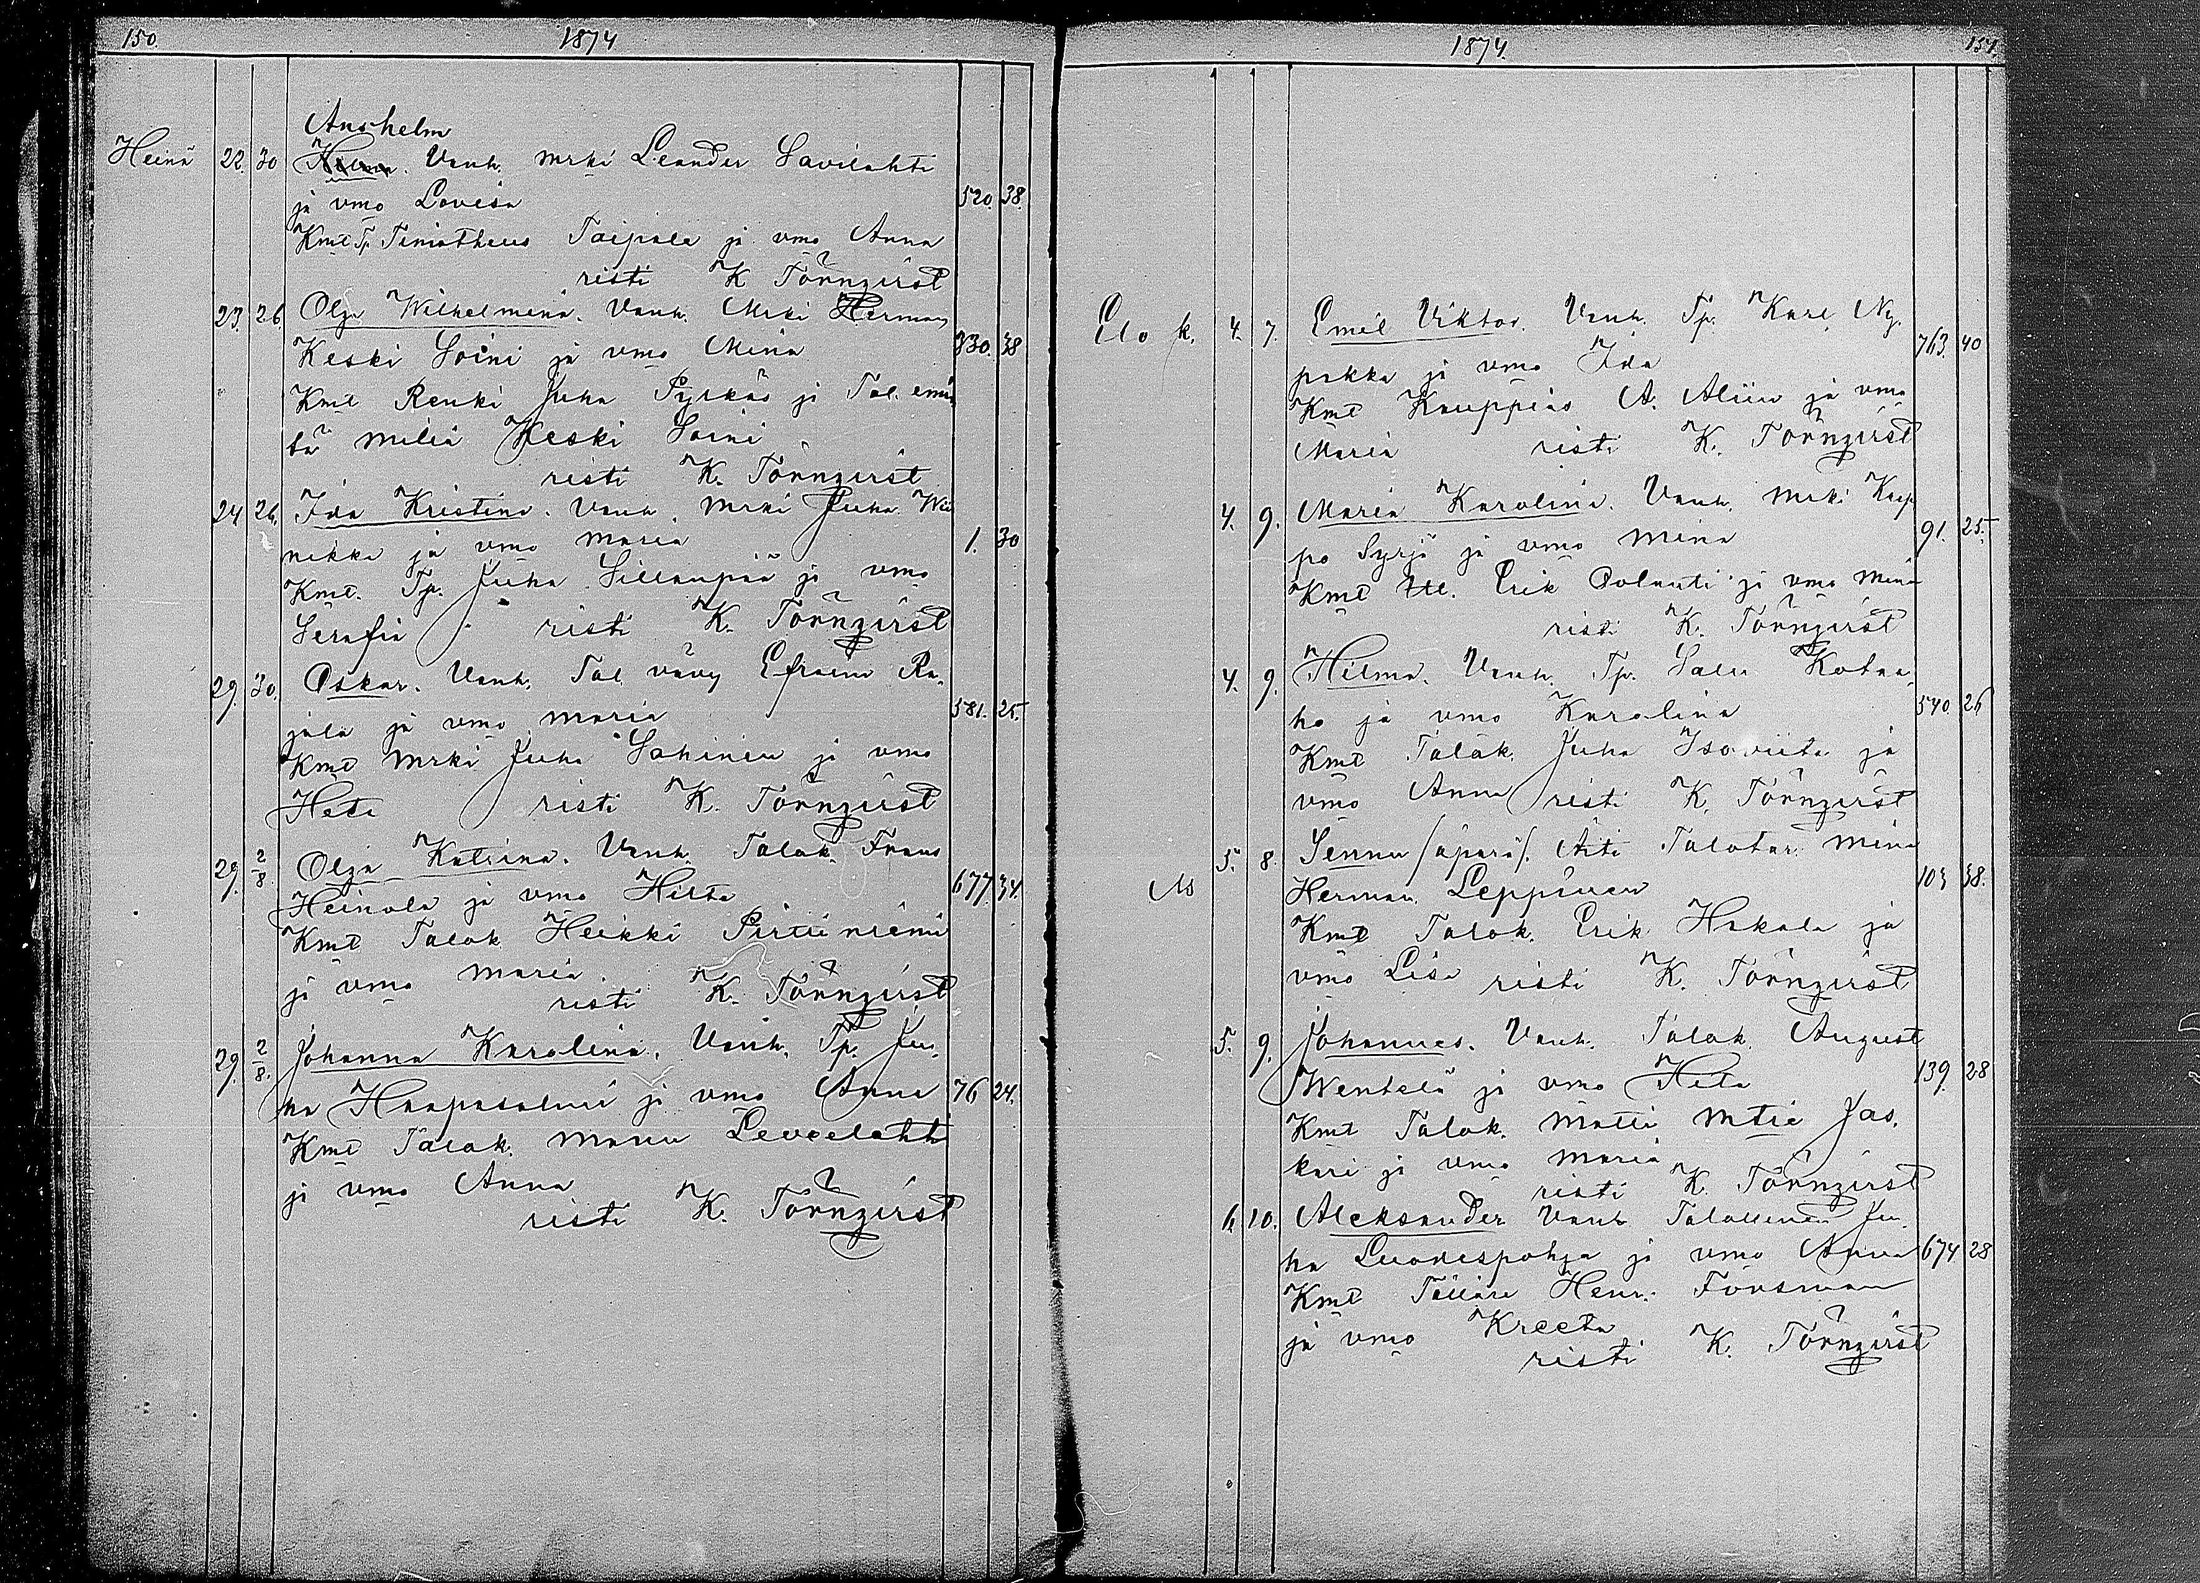 150. 1874
Anshelm
Heinä 22. 30 Vanh. mrki Leander Savilahti
ja vmo Lovisa 520. 38.
Kmt Tp. Timotheus Taipale ja vmo Anna
risti K Törnqvist
23. 26. Olga Wilhelmina. Vanh. Mrki Herman
Keski Soini ja vmo Mina 330. 38
Kmt Renki Juha Pyikäs ja Tal. emän
tä Milia Keski Soini
risti K. Törnqvist
24 26. Ida Kristina. Vanh. Mrki Juha Wii
nikka ja vmo Maria 1. 30
Kmt. Tp. Juha Sillanpää ja vmo
Serafia risti K. Törnqvist
29. 30. Oskar. Vanh. Tal. vävy Efraim Ra.
jala ja vmo Maria 581. 25.
Kmt Mrki Juha Sahinen ja vmo
Heta risti K. Törnqvist
29. 2/8 Olga Katriina. Vanh. Talok. Frans
Heinola ja vmo Hilta 677. 34.
Kmt Talok Heikki Pirttiniemi
ja vmo Maria.
risti K. Törnqvist
29. 2/8. Johanna Karolina. Vanh. Tp. Ju.
ha Haapasalmi ja vmo Anna 76 24.
Kmt Talok. Manu Leveelahti
ja vmo Anna
risti K. Törnqvist
1874. 151
Elo k. 4. 7. Emil Viktor. Vanh. Tp. Karl Ny.
pakka ja vmo Ida 763. 40
Kmt Kauppias A. Aliin ja vmo
Maria risti K. Törnqvist
4. 9. Maria Karolina. Vanh. Mrki Kaap
po Syrjä ja vmo Mina 91. 25.
Kmt Erik ja vmo Mina
risti K. Törnqvist
4. 9. Hilma. Vanh. Tp. Salu Kotaa
ho ja vmo Karolina 540. 26
Kmt Talok. Juha Isoviita ja
vmo Anna risti K. Törnqvist
5. 8. Sennu /äpärä/. Äiti Talotar Mina
Herman. Leppinen 103 38.
Kmt Talok. Erik Hakala ja
vmo Lisa risti K. Törnqvist
5. 9. Johannes. Vanh. Talok. August
Wentelä ja vmo Heta 139. 28
Kmt Talok. Matti Mtti Jas.
kari ja vmo Maria
risti K. Törnqvist
6. 10. Aleksander Vanh Talollinen Ju.
ha Luodespohja ja vmo Anna 674 28
Kmt Tälläri Henr. Forsman
ja vmo Kreeta
risti K. Törnqvist